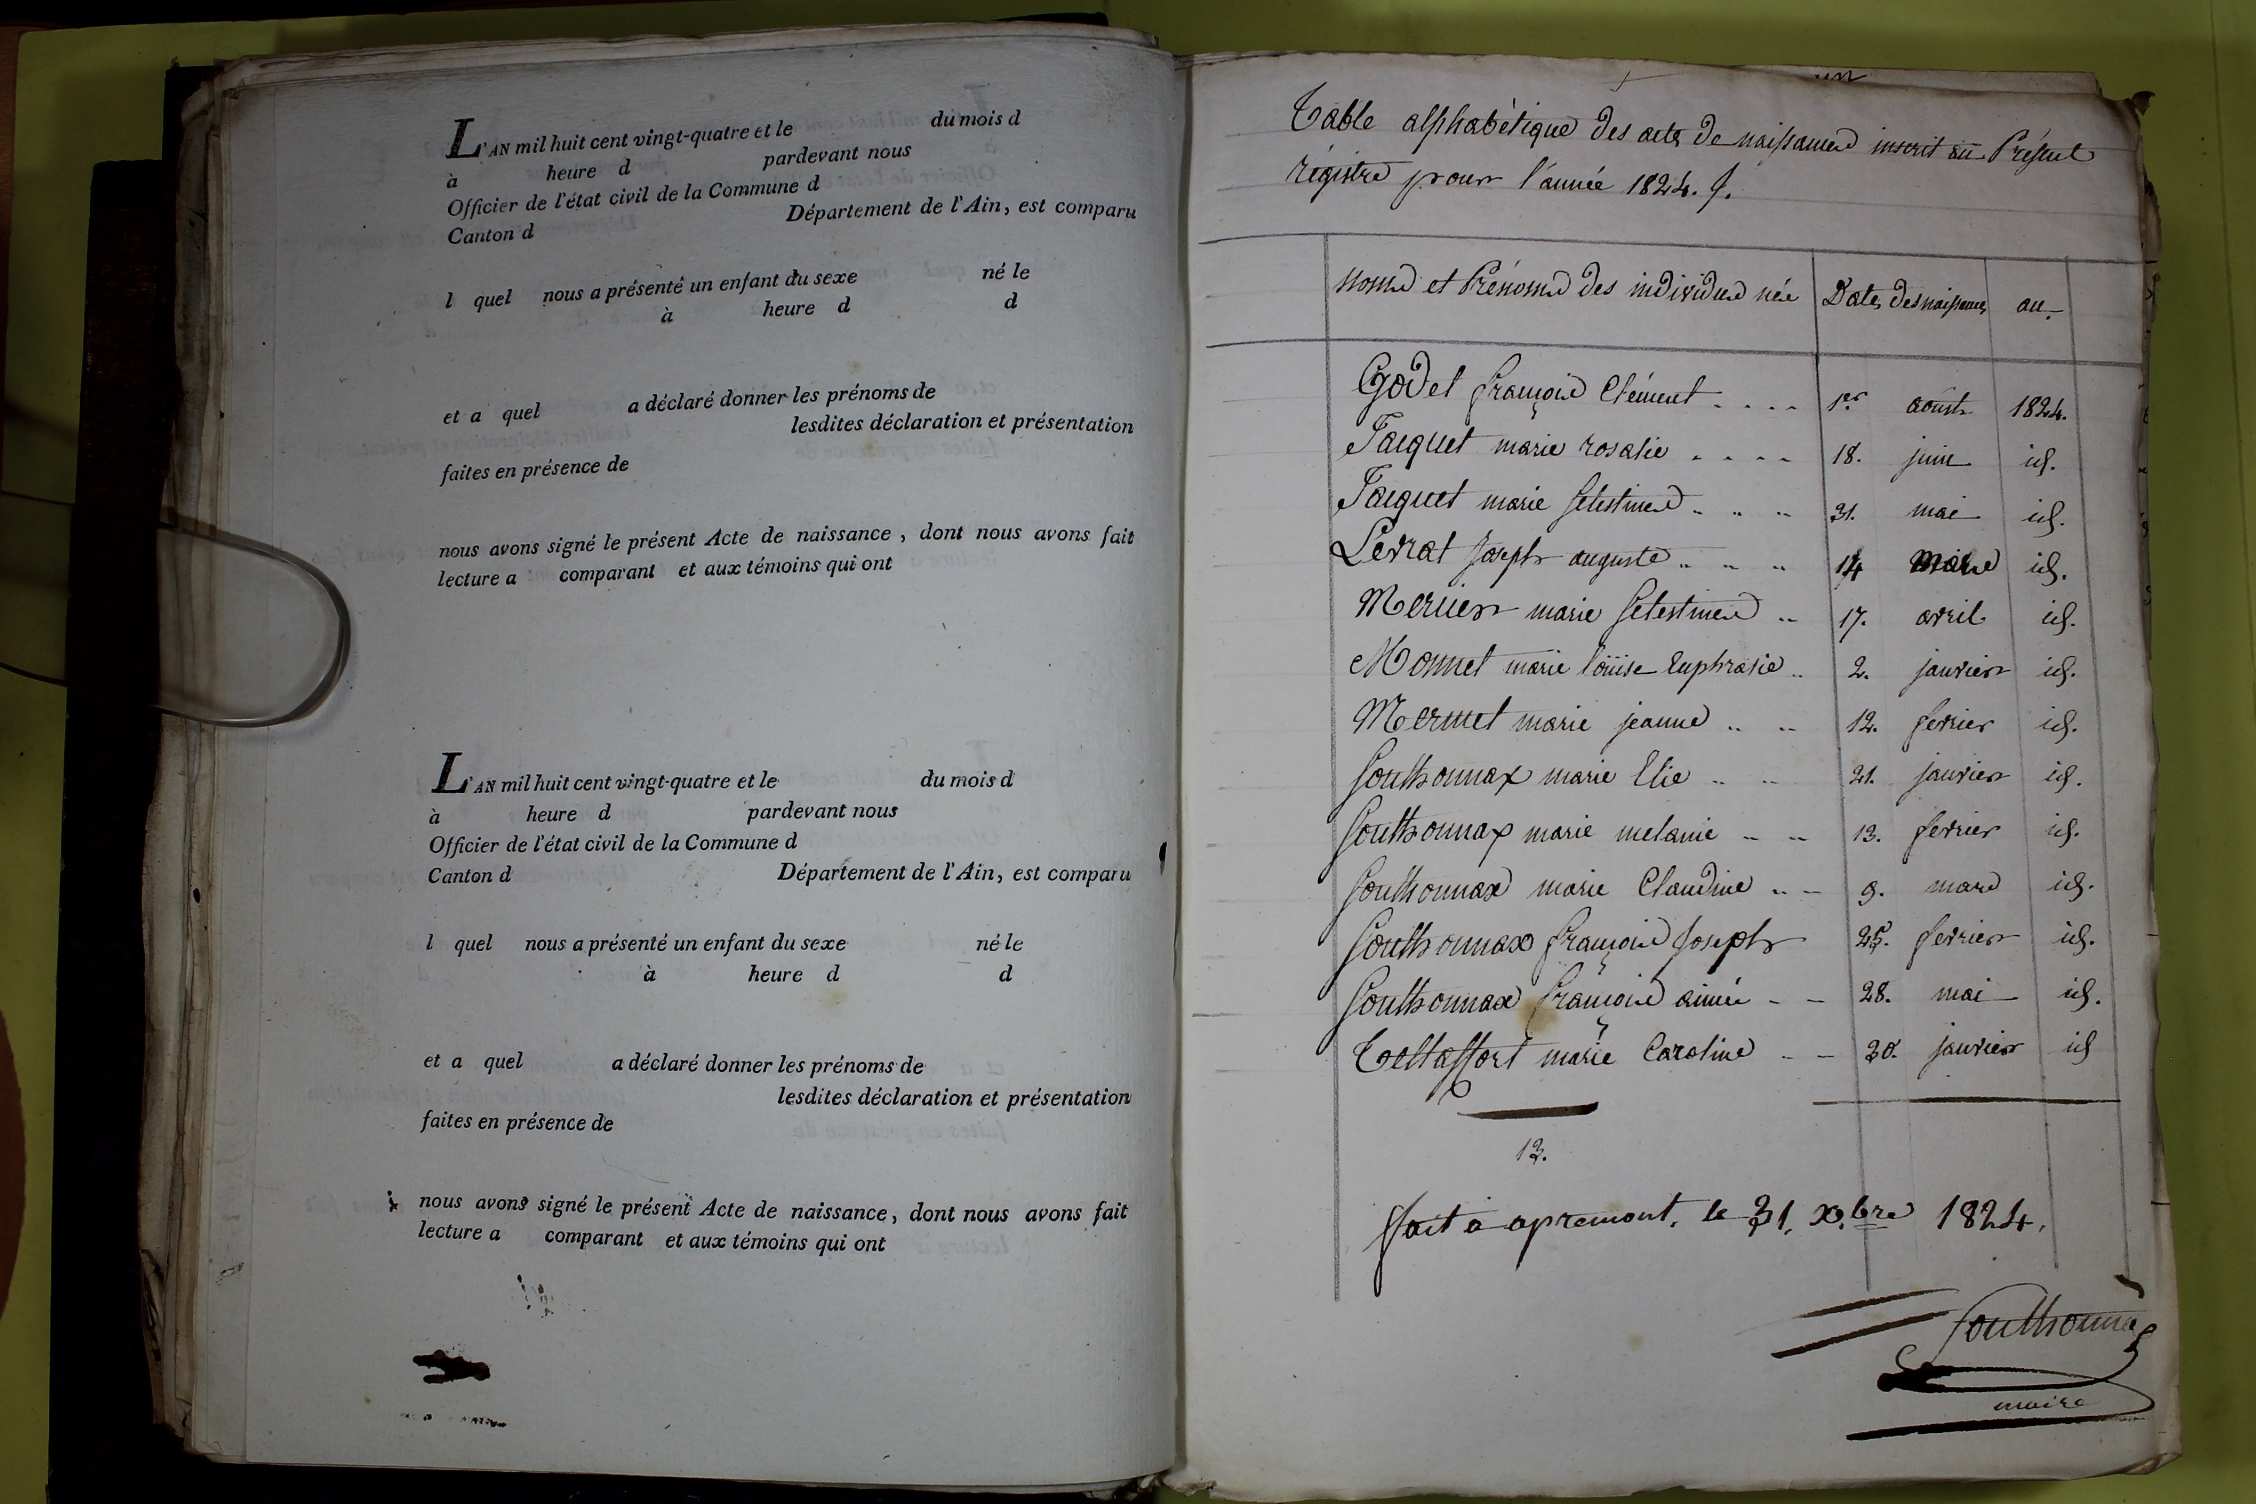 L'AN mil huit cent vingt-quatre et le du mois d
à heure d pardevant nous
Officier de l'état civil de la Commune d
Canton d Département de l'Ain, est comparu
l quel nous a présenté un enfant du sexe né le
à heure d d
et a quel a déclaré donner les prénoms de
lesdites déclaration et présentation
faites en présence de
nous avons signé le présent Acte de naissance, dont nous avons fait
lecture a comparant et aux témoins qui ont
L'AN mil huit cent vingt-quatre et le du mois d
à heure d pardevant nous
Officier de l'état civil de la Commune d
Canton d Département de l'Ain, est comparu
l quel nous a présenté un enfant du sexe né le
à heure d d
et a quel a déclaré donner les prénoms de
lesdites déclaration et présentation
faites en présence de
nous avons signé le présent Acte de naissance, dont nous avons fait
lecture a comparant et aux témoins qui ont
Table alphabètique des acts de naissances inscrit au Présent
régistre pour l'année 1824.
Noms et Prénoms des individus née Dates des naissances an.
Godet françois Clément 1er août 1824.
Jacquet marie rosalie 18. juin id.
Jacquet marie Selestines 31. mai id.
Levrat Joseph auguste 14 mars id.
Mercier marie Selestines 17. avril id.
Monnet marie loüise Euphrasie 2. janvier id.
Mermet marie jeanne 12. fevrier id.
Southonnax marie Elie 21. janvier id.
Southonnax marie melanie 13. fevrier id.
Southonnax marie Claudine 9. mars id.
Southonnax françois Joseph 25. fevrier id.
Southonnax françois aimée 28. mai id.
Toettaffort marie Caroline 20. janvier id
13.
fait à apremont, le 31. xbre 1824.
Southonnax
maire